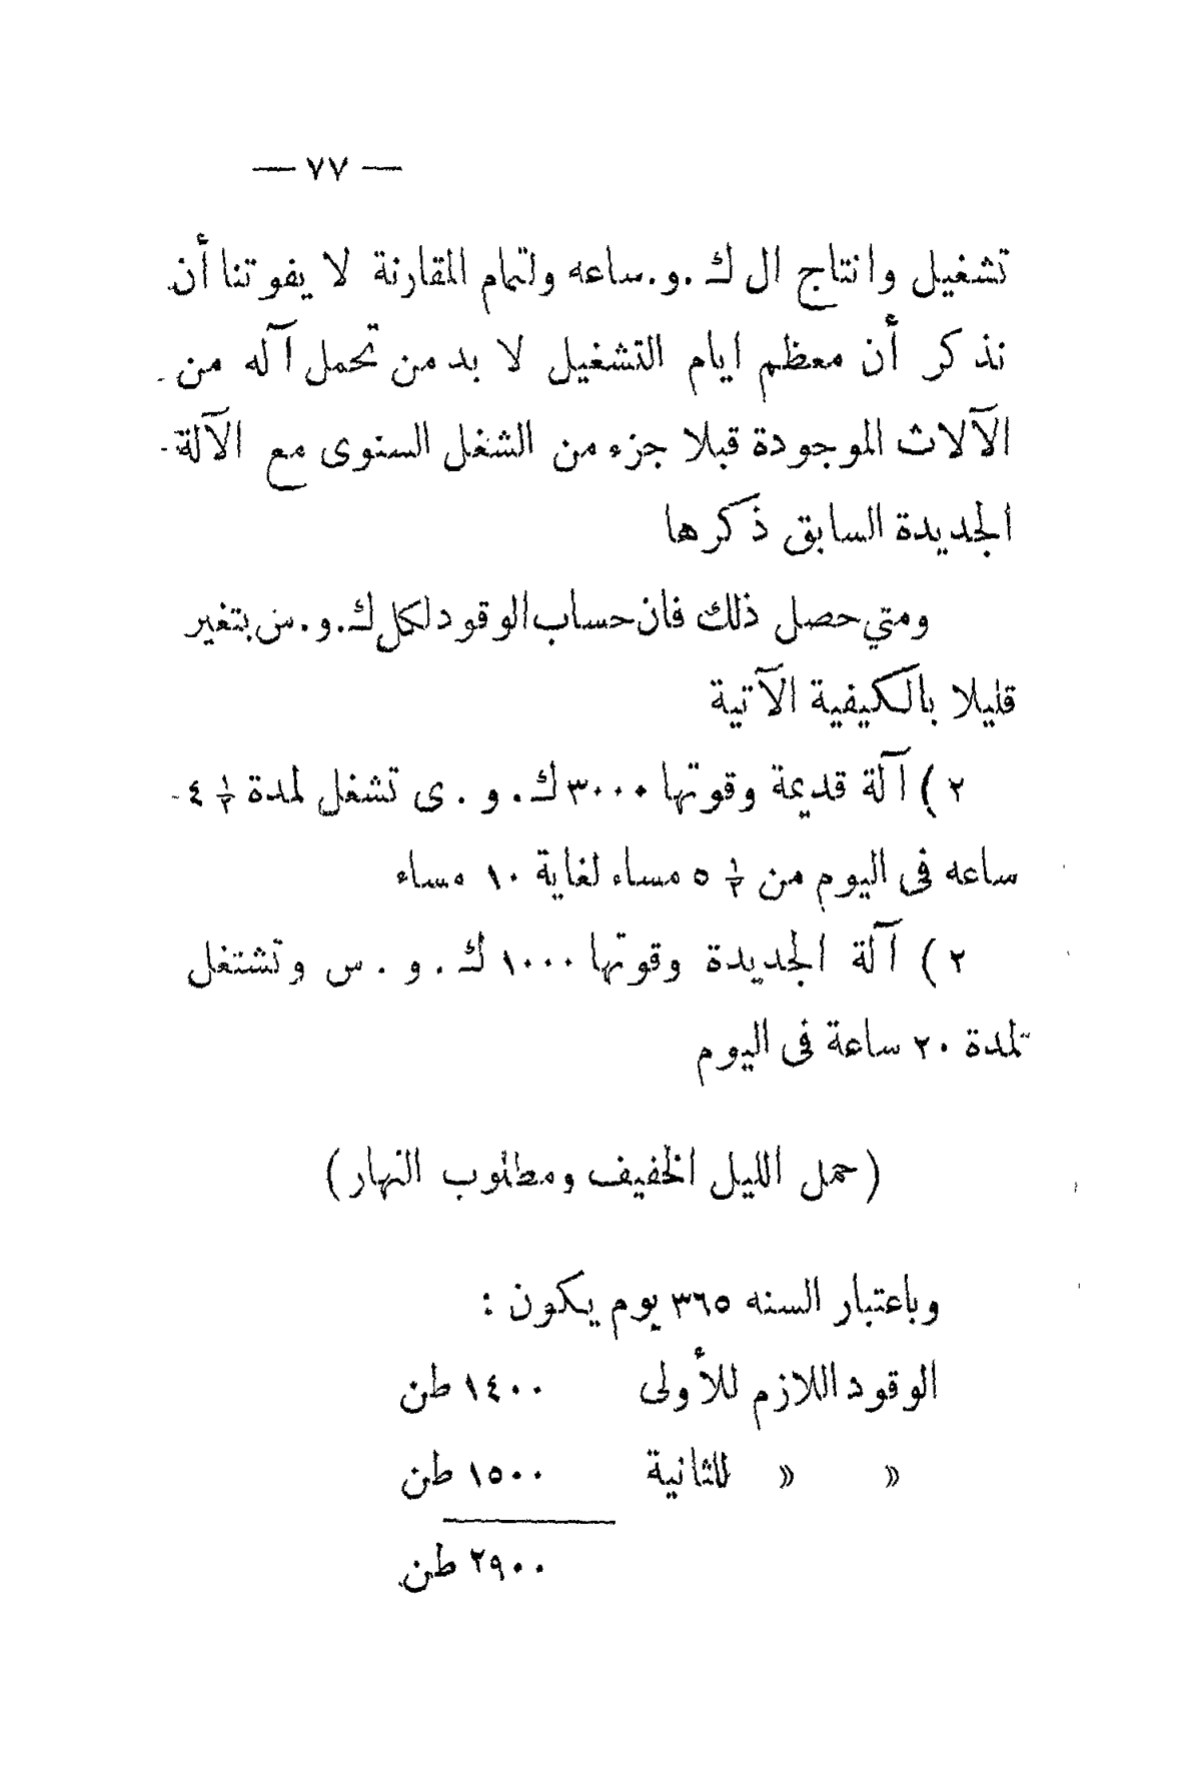 — ٧٧ —
تشغيل وانتاج ال ك .و.ساعه ولتمام المقارنة لا يفوتنا أن
نذكر أن معظم ايام التشغيل لا بد من تحمل آله من
الآلات الموجودة قبلا جزء من الشغل السنوى مع الآلة
الجديدة السابق ذكرها
ومتي حصل ذلك فان حساب الوقود لكل ك.و.س بتغير
قليلا بالكيفية الآتية
٢ ) آلة قديمة وقوتها ٣٠٠٠ ك . و . ى تشغل لمدة ½ ٤
ساعه فى اليوم من ½ ٥ مساء لغاية ١٠ مساء
٢ ) آلة الجديدة وقوتها ١٠٠٠ ك . و . س وتشتغل
لمدة ٢٠ ساعة فى اليوم
(حمل الليل الخفيف ومطلوب النهار)
وباعتبار السنه ٣٦٥ يوم يكون :
الوقود اللازم للأولى ١٤٠٠ طن
» » للثانية ١٥٠٠ طن
٢٩٠٠ طن